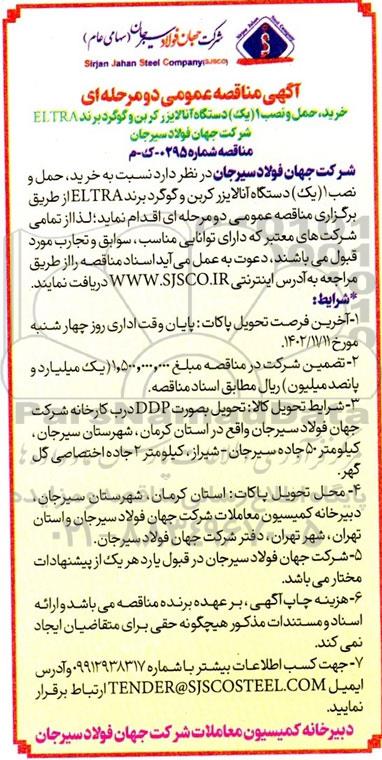 شرکت جهان فولاد سیرجان (سهامی عام)
Sirjan Jahan Steel Company (SJSCO)
آگهی مناقصه عمومی دو مرحله ای
خرید، حمل و نصب ۱ (یک) دستگاه آنالایزر کربن و گوگرد برند ELTRA
شرکت جهان فولاد سیرجان
مناقصه شماره ۰۲۹۵-ک-م
شرکت جهان فولاد سیرجان در نظر دارد نسبت به خرید، حمل و
نصب ۱ (یک) دستگاه آنالایزر کربن و گوگرد برند ELTRA از طریق
برگزاری مناقصه عمومی دو مرحله ای اقدام نماید؛ لذا از تمامی
شرکت های معتبر که دارای توانایی مناسب، سوابق و تجارب مورد
قبول می باشند، دعوت به عمل می آید اسناد مناقصه را از طریق
مراجعه به آدرس اینترنتی WWW.SJSCO.IR دریافت نمایند.
*شرایط:
۱-آخرین فرصت تحویل پاکات: پایان وقت اداری روز چهارشنبه
مورخ ۱۴۰۲/۱۱/۱۱.
۲-تضمین شرکت در مناقصه مبلغ ۱,۵۰۰,۰۰۰,۰۰۰ (یک میلیارد و
پانصد میلیون) ریال مطابق اسناد مناقصه.
۳-شرایط تحویل کالا: تحویل بصورت DDP درب کارخانه شرکت
جهان فولاد سیرجان واقع در استان کرمان، شهرستان سیرجان،
کیلومتر ۵۰ جاده سیرجان-شیراز، کیلومتر ۲ جاده اختصاصی گل
گهر.
۴- محل تحویل پاکات: استان کرمان، شهرستان سیرجان،
دبیرخانه کمیسیون معاملات شرکت جهان فولاد سیرجان و استان
تهران، شهر تهران، دفتر شرکت جهان فولاد سیرجان.
۵-شرکت جهان فولاد سیرجان در قبول یا رد هر یک از پیشنهادات
مختار می باشد.
۶-هزینه چاپ آگهی، بر عهده برنده مناقصه می باشد و ارائه
اسناد و مستندات مذکور هیچگونه حقی برای متقاضیان ایجاد
نمی کند.
۷-جهت کسب اطلاعات بیشتر با شماره ۰۹۹۱۲۹۳۸۳۱۷ و آدرس
ایمیل TENDER@SJSCOSTEEL.COM ارتباط برقرار
نمایید.
دبیرخانه کمیسیون معاملات شرکت جهان فولاد سیرجان